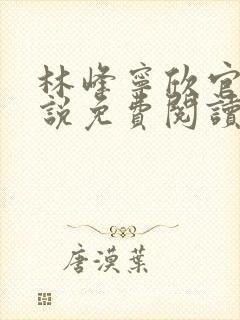 林峰寧欣官
說免費閱讀
唐漠葉